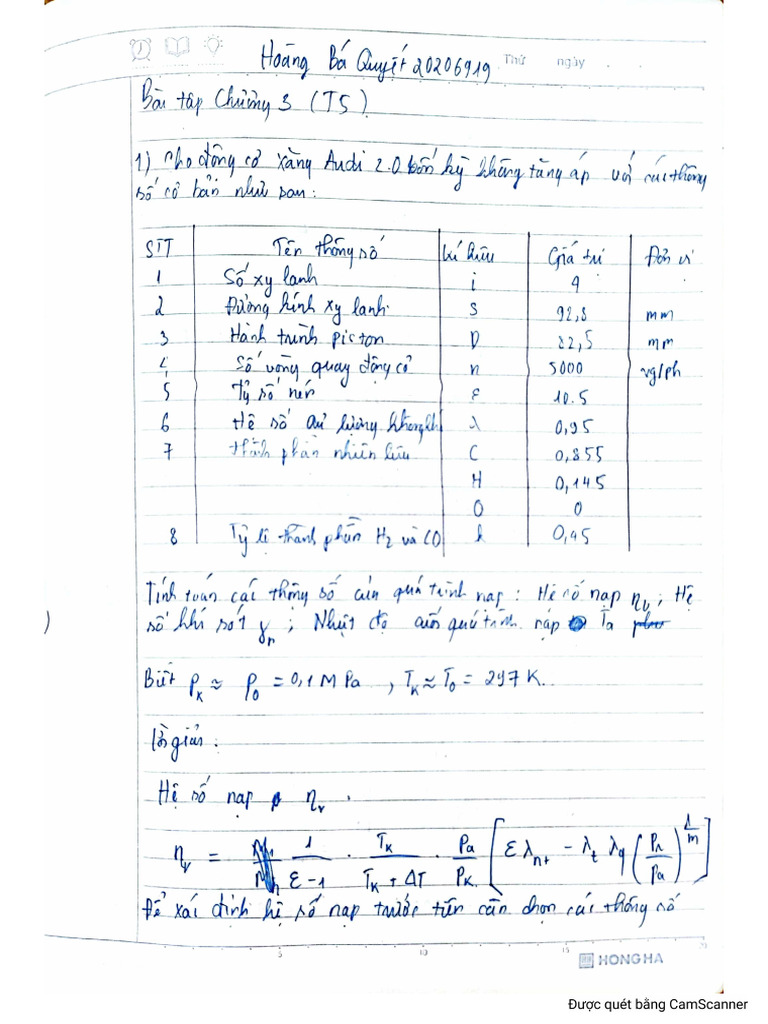 Thứ ngày
Hoàng Bá Quyết 20206919
Bài tập Chương 3 (T5)
1) Cho động cơ xăng Audi 2.0 bốn kỳ không tăng áp với các thông
số cơ bản như sau:
STT Tên thông số Kí hiệu Giá trị Đơn vị
1 Số xy lanh i 4
2 Đường kính xy lanh S 92,8 mm
3 Hành trình piston D 82,5 mm
4 Số vòng quay động cơ n 5000 vg/ph
5 Tỷ số nén ε 10.5
6 Hệ số dư lượng không khí λ 0,95
7 Thành phần nhiên liệu C 0,855
H 0,145
O 0
8 Tỷ lệ thành phần H2 và CO k 0,45
Tính toán các thông số của quá trình nạp: Hệ số nạp ηv; Hệ
số khí sót γr; Nhiệt độ cuối quá trình nạp Ta
Biết pk ≈ p0 = 0,1 MPa, Tk ≈ T0 = 297 K.
Lời giải:
Hệ số nạp ηv.
ηv = 1/(ε-1) . Tk/(Tk + ΔT) . Pa/Pk [ε λnt - λt λq (Pr/Pa)^(1/m)]
Để xác định hệ số nạp trước tiên cần chọn các thông số
5 10 15 20
HONG HA
Được quét bằng CamScanner